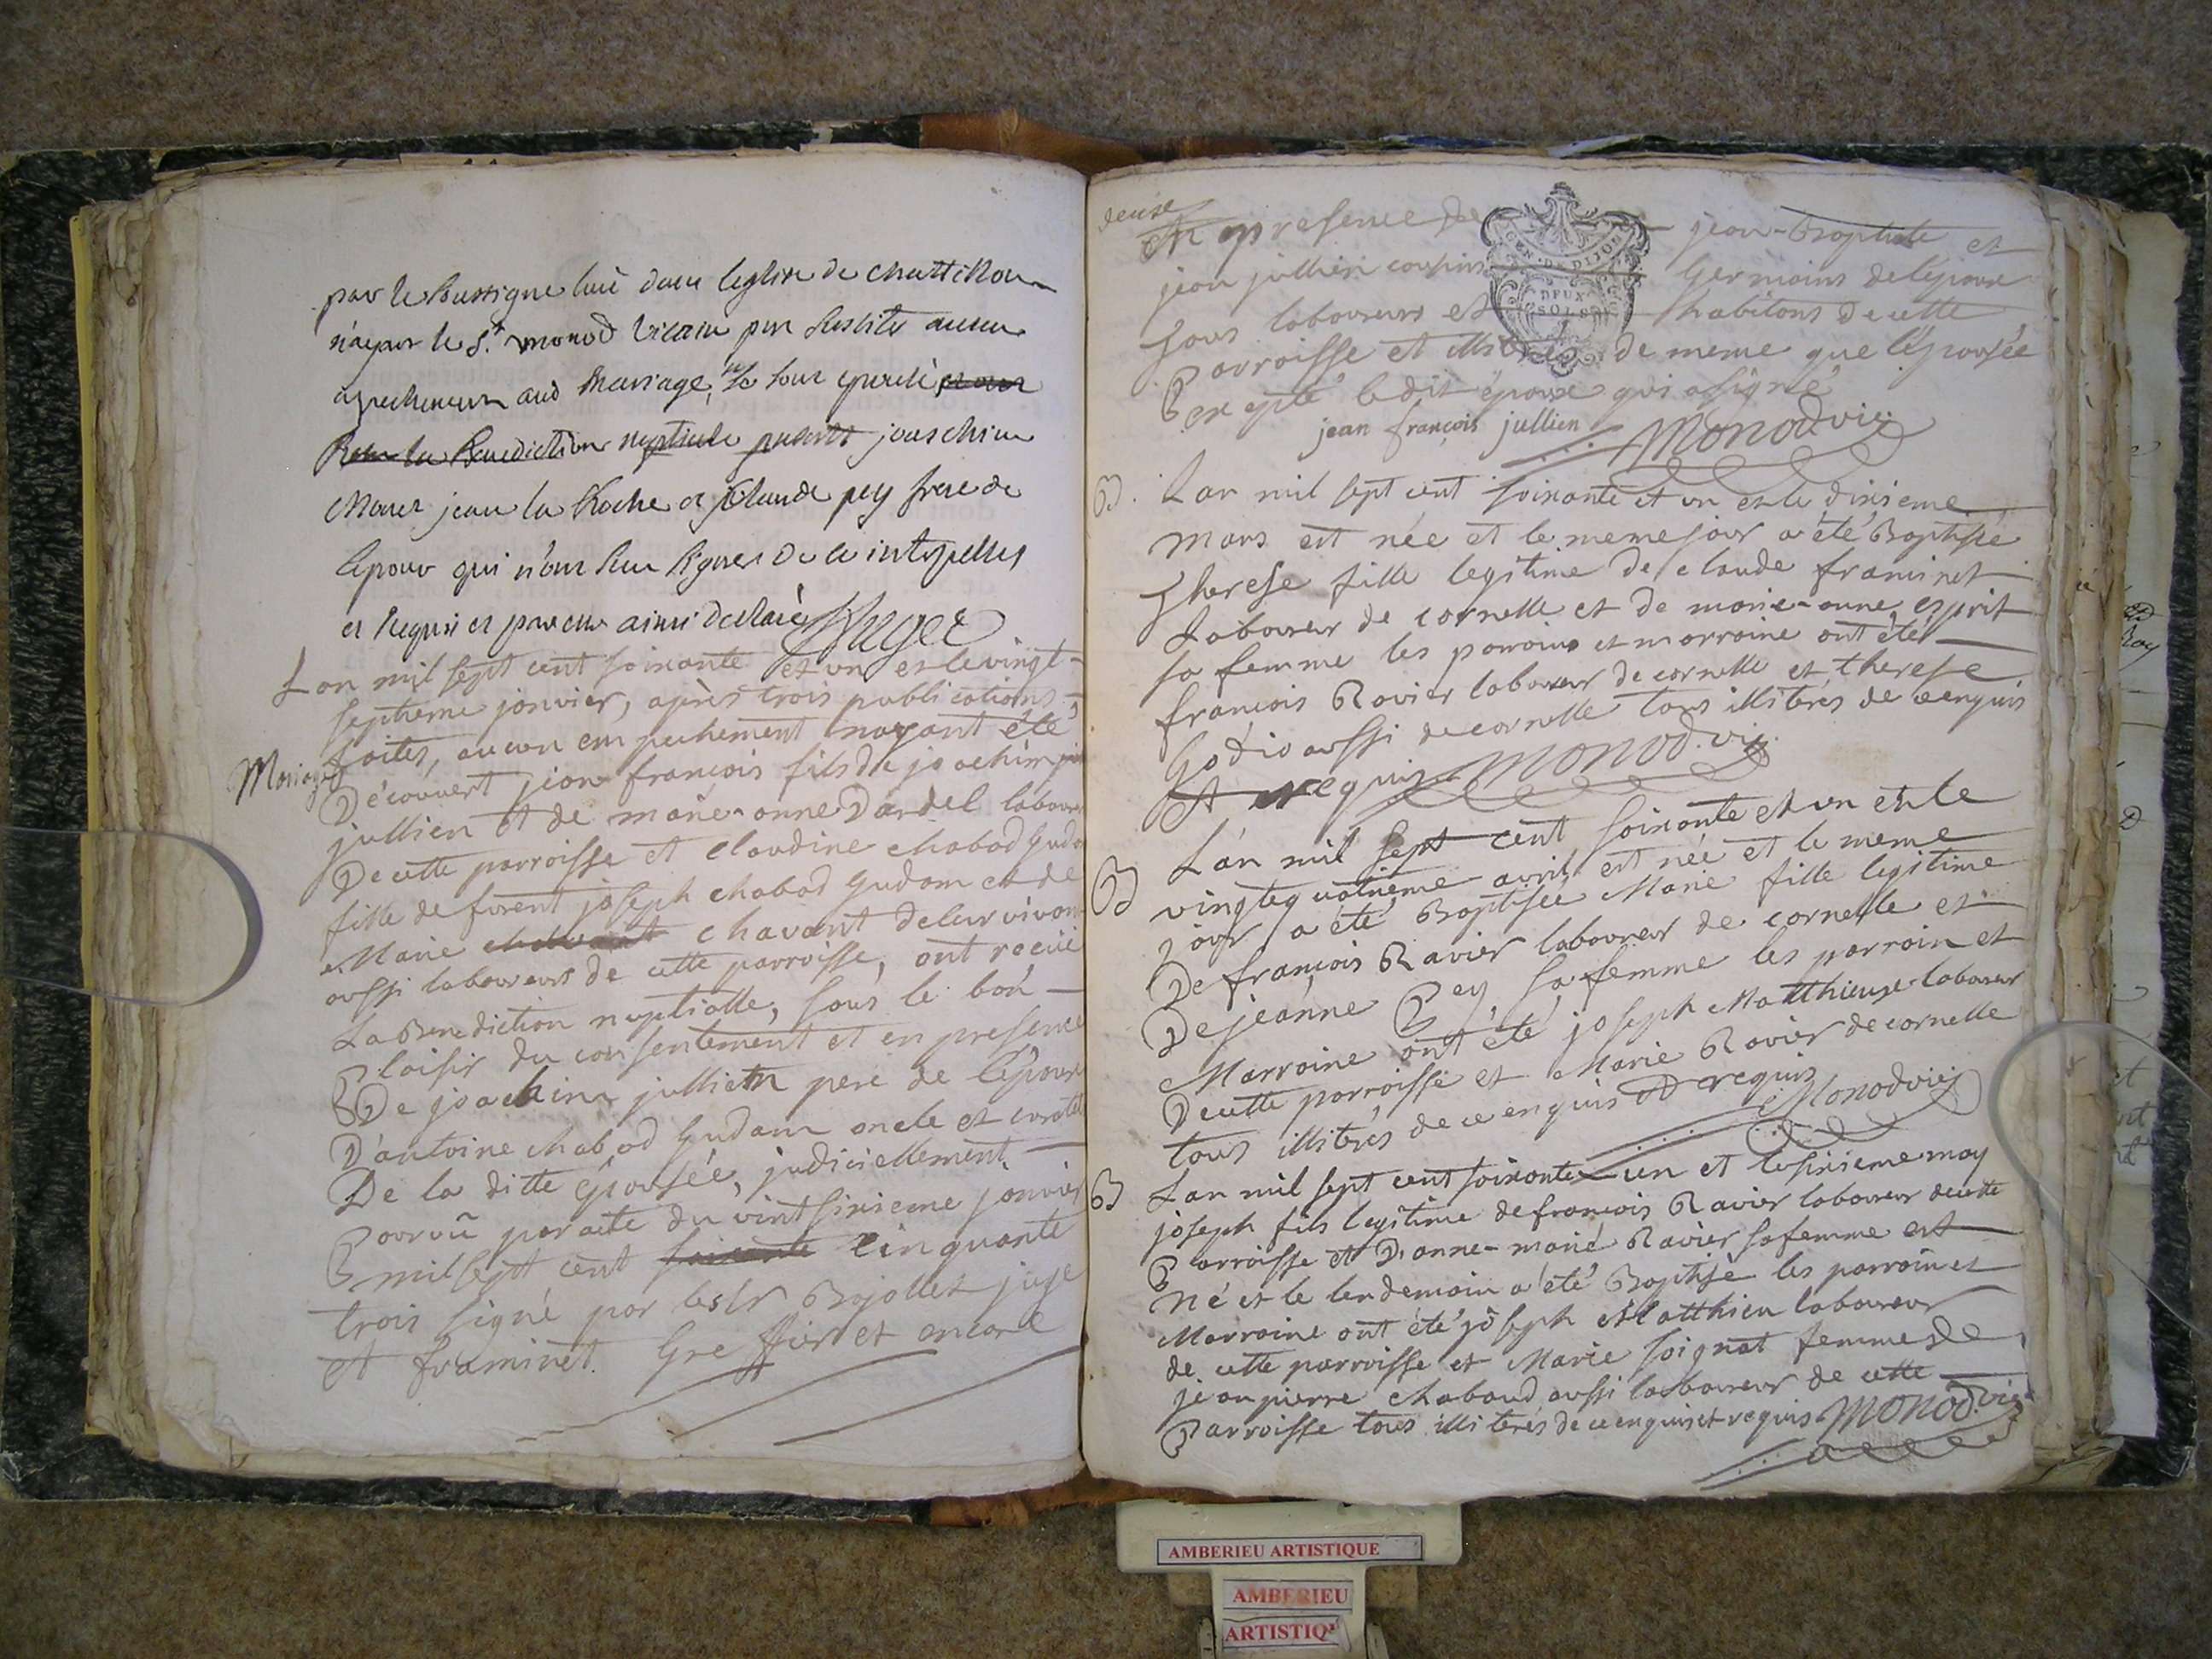 par le soussigne luë dans leglise de chattillon
n'ayant le Sr. monod vicaire
empechement aud mariage, epousé
Benediction nuptiale presents joaschim
Monet jean la Roche et Claude pey frere de
lepoux qui n'ont sceu signer de ce interpelles
et requis et par eux ainsi declaré Ruget
Lan mil sept cent soixante et un et le vingt-
septieme janvier, après trois publications
faites, aucun empechement nayant été
Mariage
Découvert jean françois fils de joachim
jullien et de marie-anne Dardel laboureur
De cette parroisse et claudine chabod gudam
fille de furent joseph chabod gudam et de
Marie chavant deleur vivant
aussi laboureurs de cette parroisse, ont recüe
La Benediction nuptialle, sous le bon
Plaisir du consentement et en presence
De joachim jullien pere de lépoux
D'antoine chabod gudam oncle et curateur
De la ditte épousée, judiciellement
Pourvû par acte du vint sixieme janvier
mil sept cent soixante cinquante
trois signé par les sr Bajollet juge
et framinet. Greffier et encore
deuse
en presence de jean-Baptiste et
jean jullien cousins Germains de lepoux
tous laboureurs et habitans de cette
Parroisse et illiterés de meme que lépousée
Excepté ledit époux qui a signé
jean françois jullien Monod vic:
B. Lan mil sept cent soixante et un et le dixieme
mars est née et le meme jour a été Baptisée
Therese fille legitime de claude framinet
Laboureur de cornelle et de marie-anne esprit
sa femme les parrains et marraine ont été
francois Ravier laboureur de cornelle et therese
Godio aussi de cornelle tous illiterés de ce enquis
et requis Monod. vic.
B L'an mil sept cent soixante et un et le
vingtequatrieme avril est née et le meme
jour a été Baptisée Marie fille legitime
De francois Ravier laboureur de cornelle et
De jeanne Pey sa femme les parrain et
Marraine ont été joseph Matthieux laboureur
De cette parroisse et Marie Ravier de cornelle
tous illiterés de ce enquis et requis Monod vic:
B Lan mil sept cent soixante-un et le sixieme may
joseph fils legitime de francois Ravier laboureur de cette
Parroisse et D'anne-marie Ravier sa femme est
Né et le lendemain a été Baptisé les parrain et
Marraine ont été joseph Matthieu laboureur
de cette parroisse et Marie soignat femme de
jean pierre chabaud aussi laboureur de cette
Parroisse tous illiterés de ce enquis et requis Monod. vic:
GEN. DE DIJON
DEUX
SOLS
AMBERIEU ARTISTIQUE
AMBERIEU
ARTISTIQ